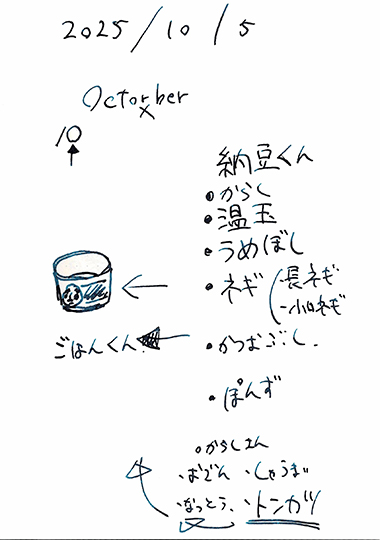 2025/10/5
Octorber
10
納豆くん
・からし
・温玉
・うめぼし
・ネギ(長ネギ
-小口ネギ
ごはんくん.
・かつおぶし.
・ぽんず
・からしさん
・おでん ・しゅうまい
・なっとう. ・トンカツ